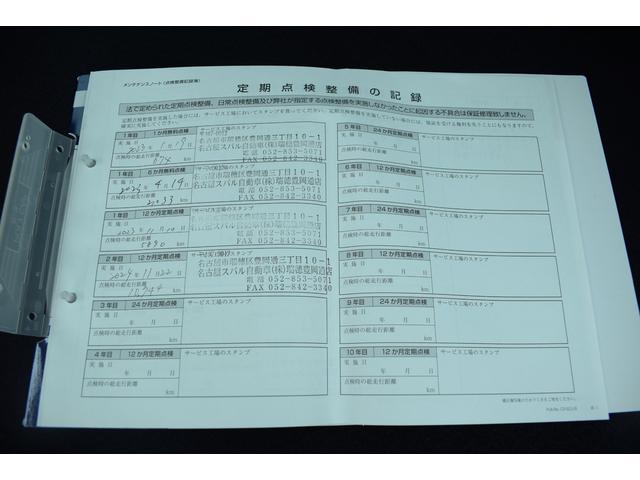 メンテナンスノート(点検整備記録簿)
定期点検整備の記録
法で定められた定期点検整備、日常点検整備及び弊社が指定する点検整備を実施しなかったことに起因する不具合は保証修理致しません。
定期点検整備を実施した場合には、サービス工場においてスタンプを貰ってください。定期点検整備を実施していない場合、保証を受ける権利を失うことにもなりますので、
確実に実施してください。
1年目 1か月無料点検
サービス工場のスタンプ
実施日
2023年1月19日
点検時の総走行距離
km
〒467-0027
名古屋市瑞穂区豊岡通三丁目10-1
名古屋スバル自動車(株)瑞穂豊岡通店
電話 052-853-5071
FAX 052-842-3340
1年目 6か月無料点検
サービス工場のスタンプ
実施日
2023年4月19日
点検時の総走行距離
2033 km
名古屋市瑞穂区豊岡通三丁目10-1
名古屋スバル自動車(株)瑞穂豊岡通店
電話 052-853-5071
FAX 052-842-3340
1年目 12か月定期点検
サービス工場のスタンプ
実施日
2023年11月10日
点検時の総走行距離
5890 km
名古屋市瑞穂区豊岡通三丁目10-1
名古屋スバル自動車(株)瑞穂豊岡通店
電話 052-853-5071
FAX 052-842-3340
2年目 12か月定期点検
実施日
2024年11月22日
点検時の総走行距離
km
名古屋市瑞穂区豊岡通三丁目10-1
名古屋スバル自動車(株)瑞穂豊岡通店
電話 052-853-5071
FAX 052-842-3340
3年目 24か月定期点検
サービス工場のスタンプ
実施日
年 月 日
点検時の総走行距離
km
4年目 12か月定期点検
サービス工場のスタンプ
実施日
年 月 日
点検時の総走行距離
km
5年目 24か月定期点検
サービス工場のスタンプ
実施日
年 月 日
点検時の総走行距離
km
6年目 12か月定期点検
サービス工場のスタンプ
実施日
年 月 日
点検時の総走行距離
km
7年目 24か月定期点検
サービス工場のスタンプ
実施日
年 月 日
点検時の総走行距離
km
8年目 12か月定期点検
サービス工場のスタンプ
実施日
年 月 日
点検時の総走行距離
km
9年目 24か月定期点検
サービス工場のスタンプ
実施日
年 月 日
点検時の総走行距離
km
10年目 12か月定期点検
サービス工場のスタンプ
実施日
年 月 日
点検時の総走行距離
km